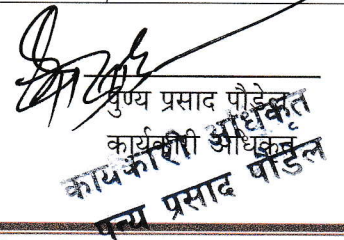 पुण्य प्रसाद पौडेल
कार्यकारी अधिकृत
कार्यकारी अधिकृत
पुण्य प्रसाद पौडेल